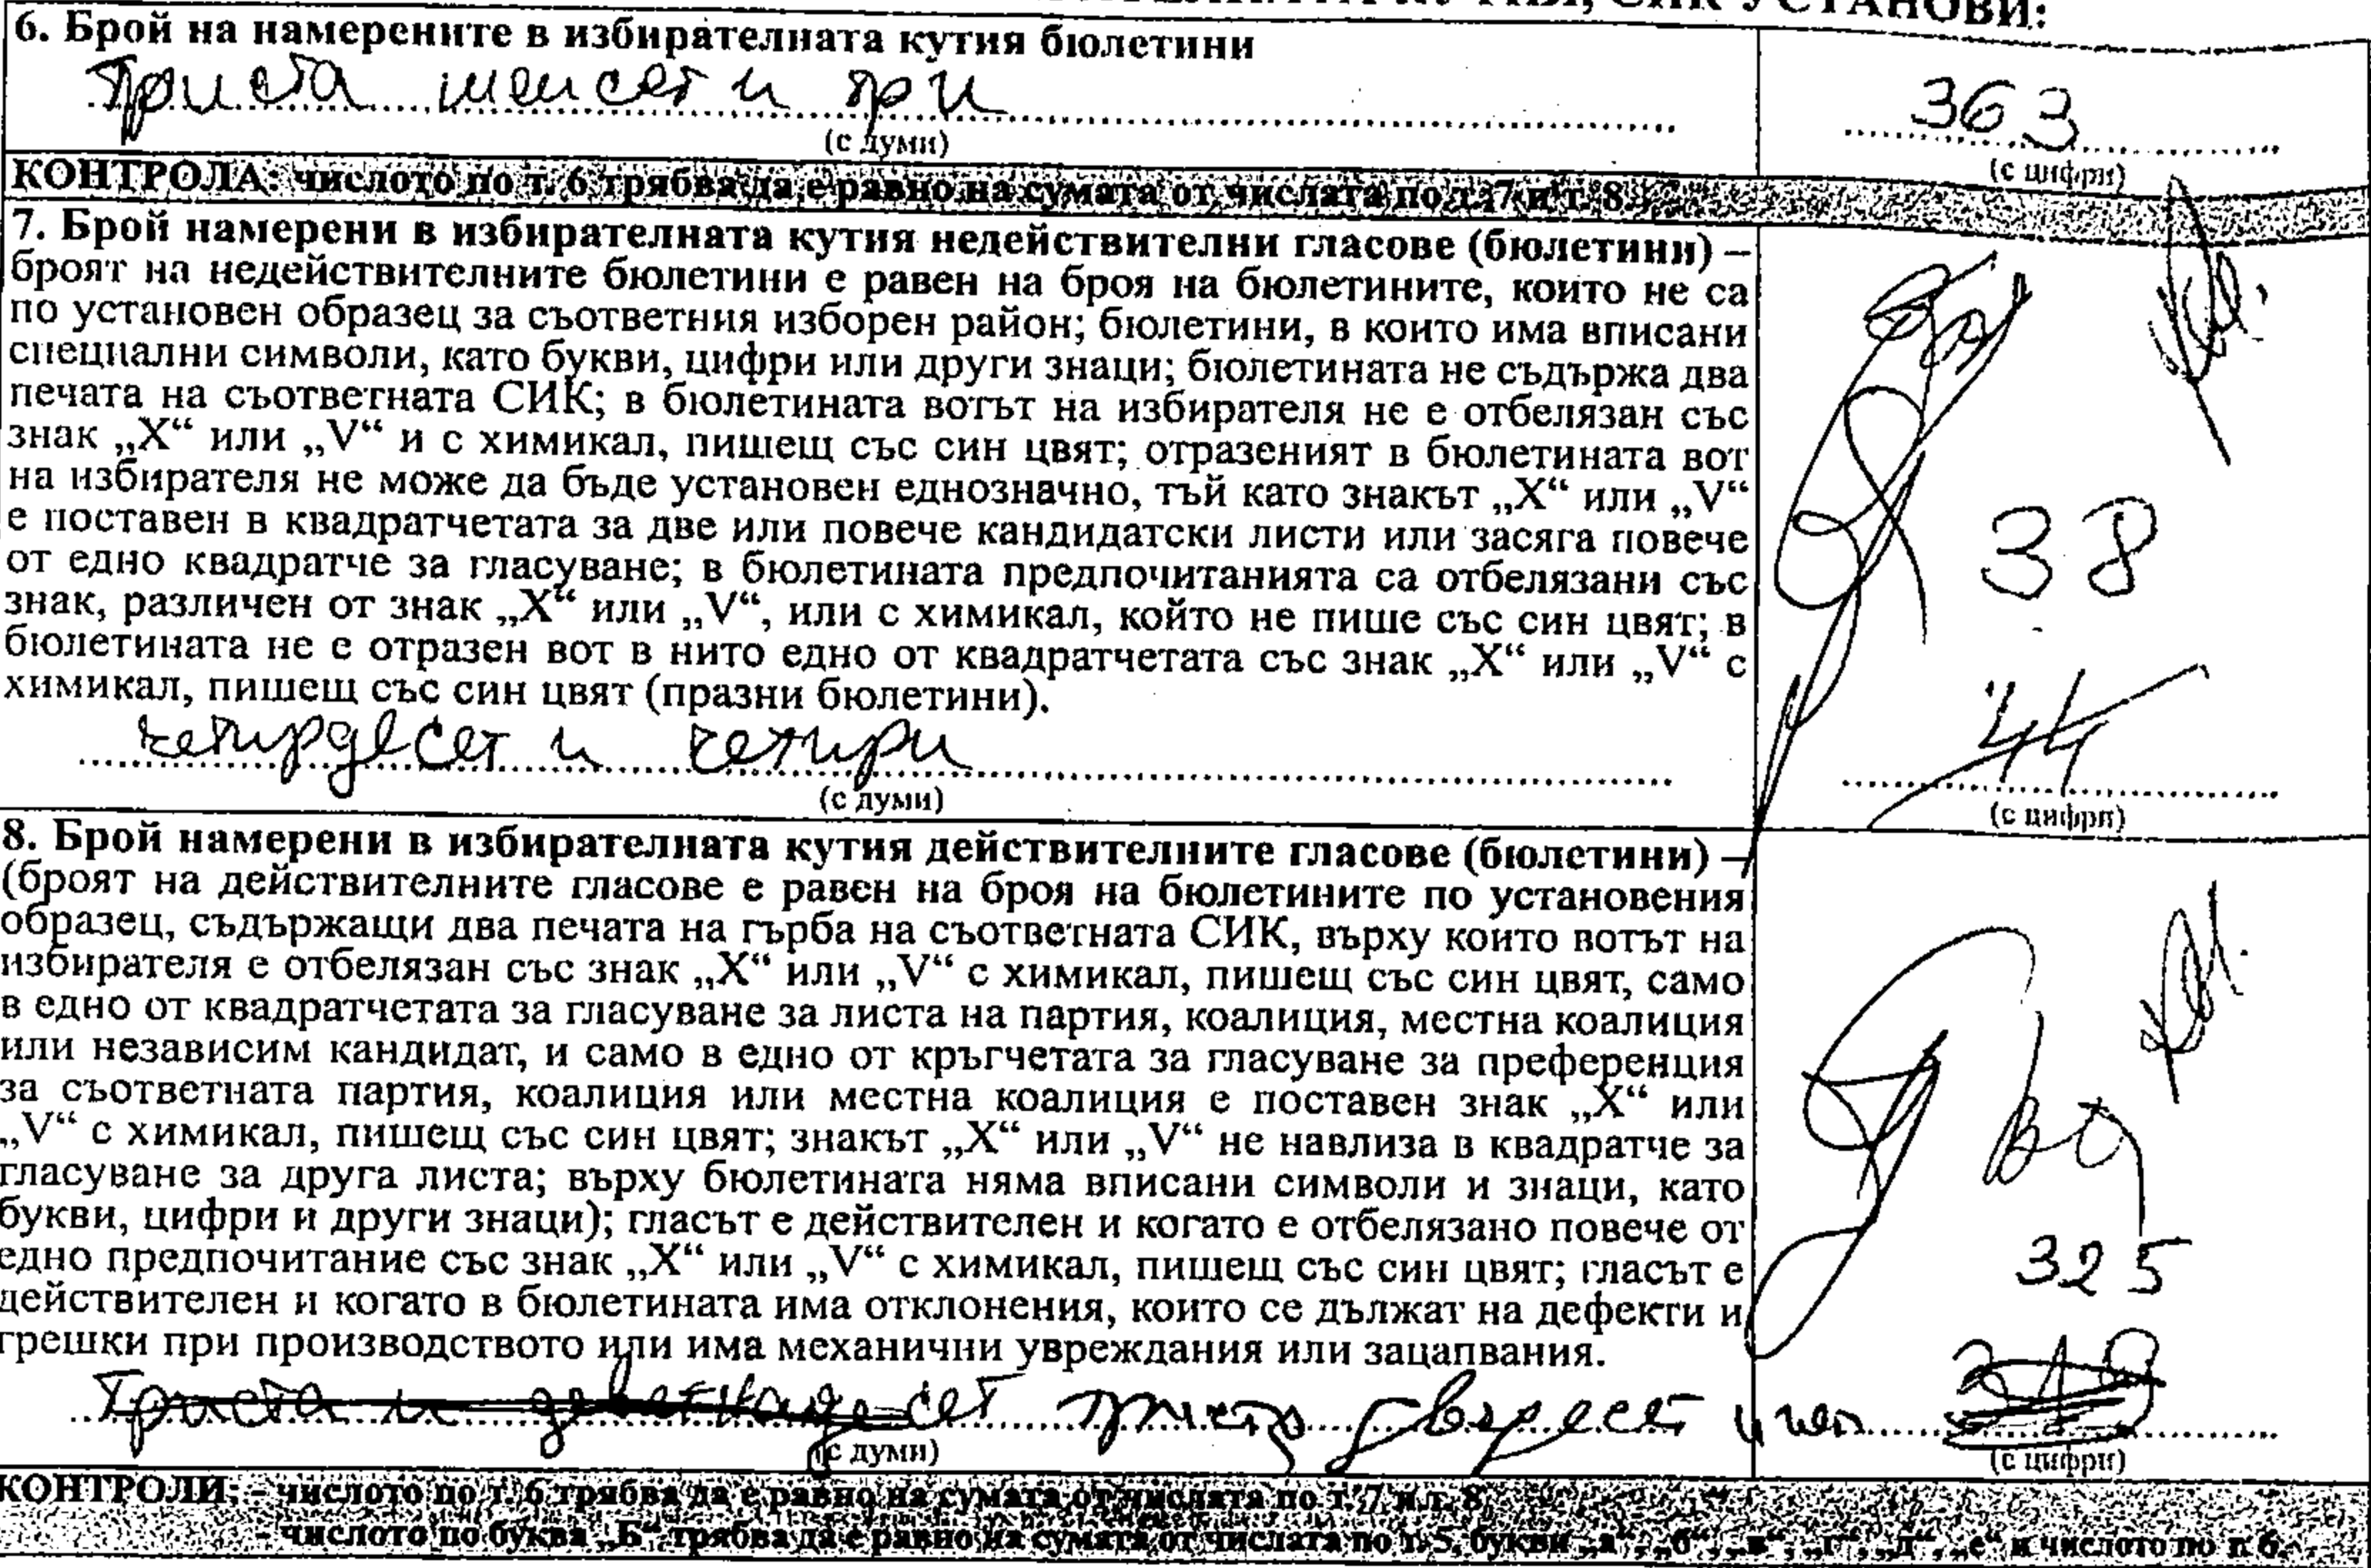 СИК УСТАНОВИ:
6. Брой на намерените в избирателната кутия бюлетини
Триста шейсет и три
363
(с думи)
(с цифри)
КОНТРОЛА: числото по т. 6 трябва да е равно на сумата от числата по т. 7 и т. 8.
7. Брой намерени в избирателната кутия недействителни гласове (бюлетини) –
броят на недействителните бюлетини е равен на броя на бюлетините, които не са
по установен образец за съответния изборен район; бюлетини, в които има вписани
специални символи, като букви, цифри или други знаци; бюлетината не съдържа два
печата на съответната СИК; в бюлетината вотът на избирателя не е отбелязан със
знак „X“ или „V“ и с химикал, пишещ със син цвят; отразеният в бюлетината вот
на избирателя не може да бъде установен еднозначно, тъй като знакът „X“ или „V“
е поставен в квадратчетата за две или повече кандидатски листи или засяга повече
от едно квадратче за гласуване; в бюлетината предпочитанията са отбелязани със
знак, различен от знак „X“ или „V“, или с химикал, който не пише със син цвят; в
бюлетината не е отразен вот в нито едно от квадратчетата със знак „X“ или „V“ с
химикал, пишещ със син цвят (празни бюлетини).
38
четирдесет и четири
44
(с думи)
(с цифри)
8. Брой намерени в избирателната кутия действителните гласове (бюлетини) –
(броят на действителните гласове е равен на броя на бюлетините по установения
образец, съдържащи два печата на гърба на съответната СИК, върху които вотът на
избирателя е отбелязан със знак „X“ или „V“ с химикал, пишещ със син цвят, само
в едно от квадратчетата за гласуване за листа на партия, коалиция, местна коалиция
или независим кандидат, и само в едно от кръгчетата за гласуване за преференция
за съответната партия, коалиция или местна коалиция е поставен знак „X“ или
„V“ с химикал, пишещ със син цвят; знакът „X“ или „V“ не навлиза в квадратче за
гласуване за друга листа; върху бюлетината няма вписани символи и знаци, като
букви, цифри и други знаци); гласът е действителен и когато е отбелязано повече от
едно предпочитание със знак „X“ или „V“ с химикал, пишещ със син цвят; гласът е
действителен и когато в бюлетината има отклонения, които се дължат на дефекти и
грешки при производството или има механични увреждания или зацапвания.
325
Триста и деветнадесет триста двадесет и пет
319
(с думи)
(с цифри)
КОНТРОЛИ: - числото по т. 6 трябва да е равно на сумата от числата по т. 7 и т. 8.
- числото по буква „Б“ трябва да е равно на сумата от числата по т. 5, букви „а“, „б“, „в“, „г“, „д“, „е“ и числото по т. 6.